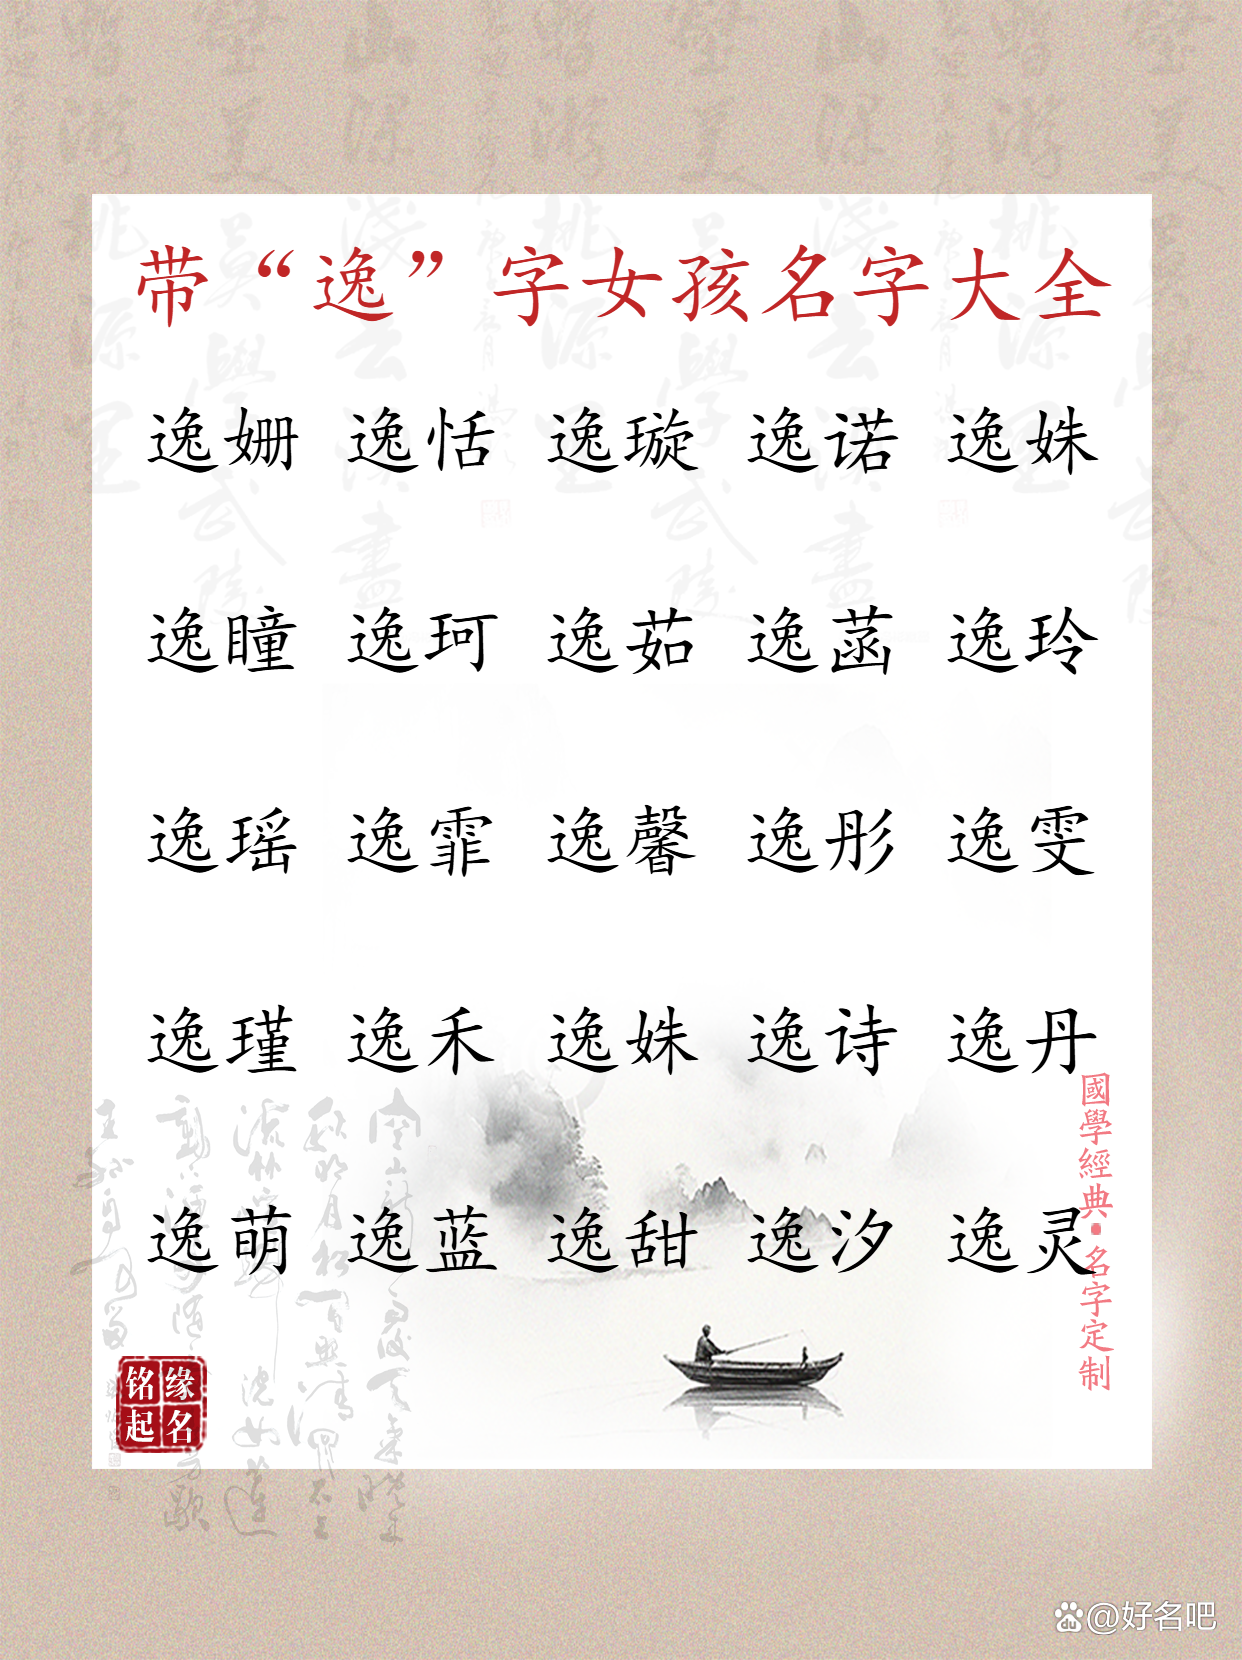 带“逸”字女孩名字大全
逸姗 逸恬 逸璇 逸诺 逸姝
逸瞳 逸珂 逸茹 逸菡 逸玲
逸瑶 逸霏 逸馨 逸彤 逸雯
逸瑾 逸禾 逸姝 逸诗 逸丹
逸萌 逸蓝 逸甜 逸汐 逸灵
國學經典·名字定制
铭缘
起名
@好名吧